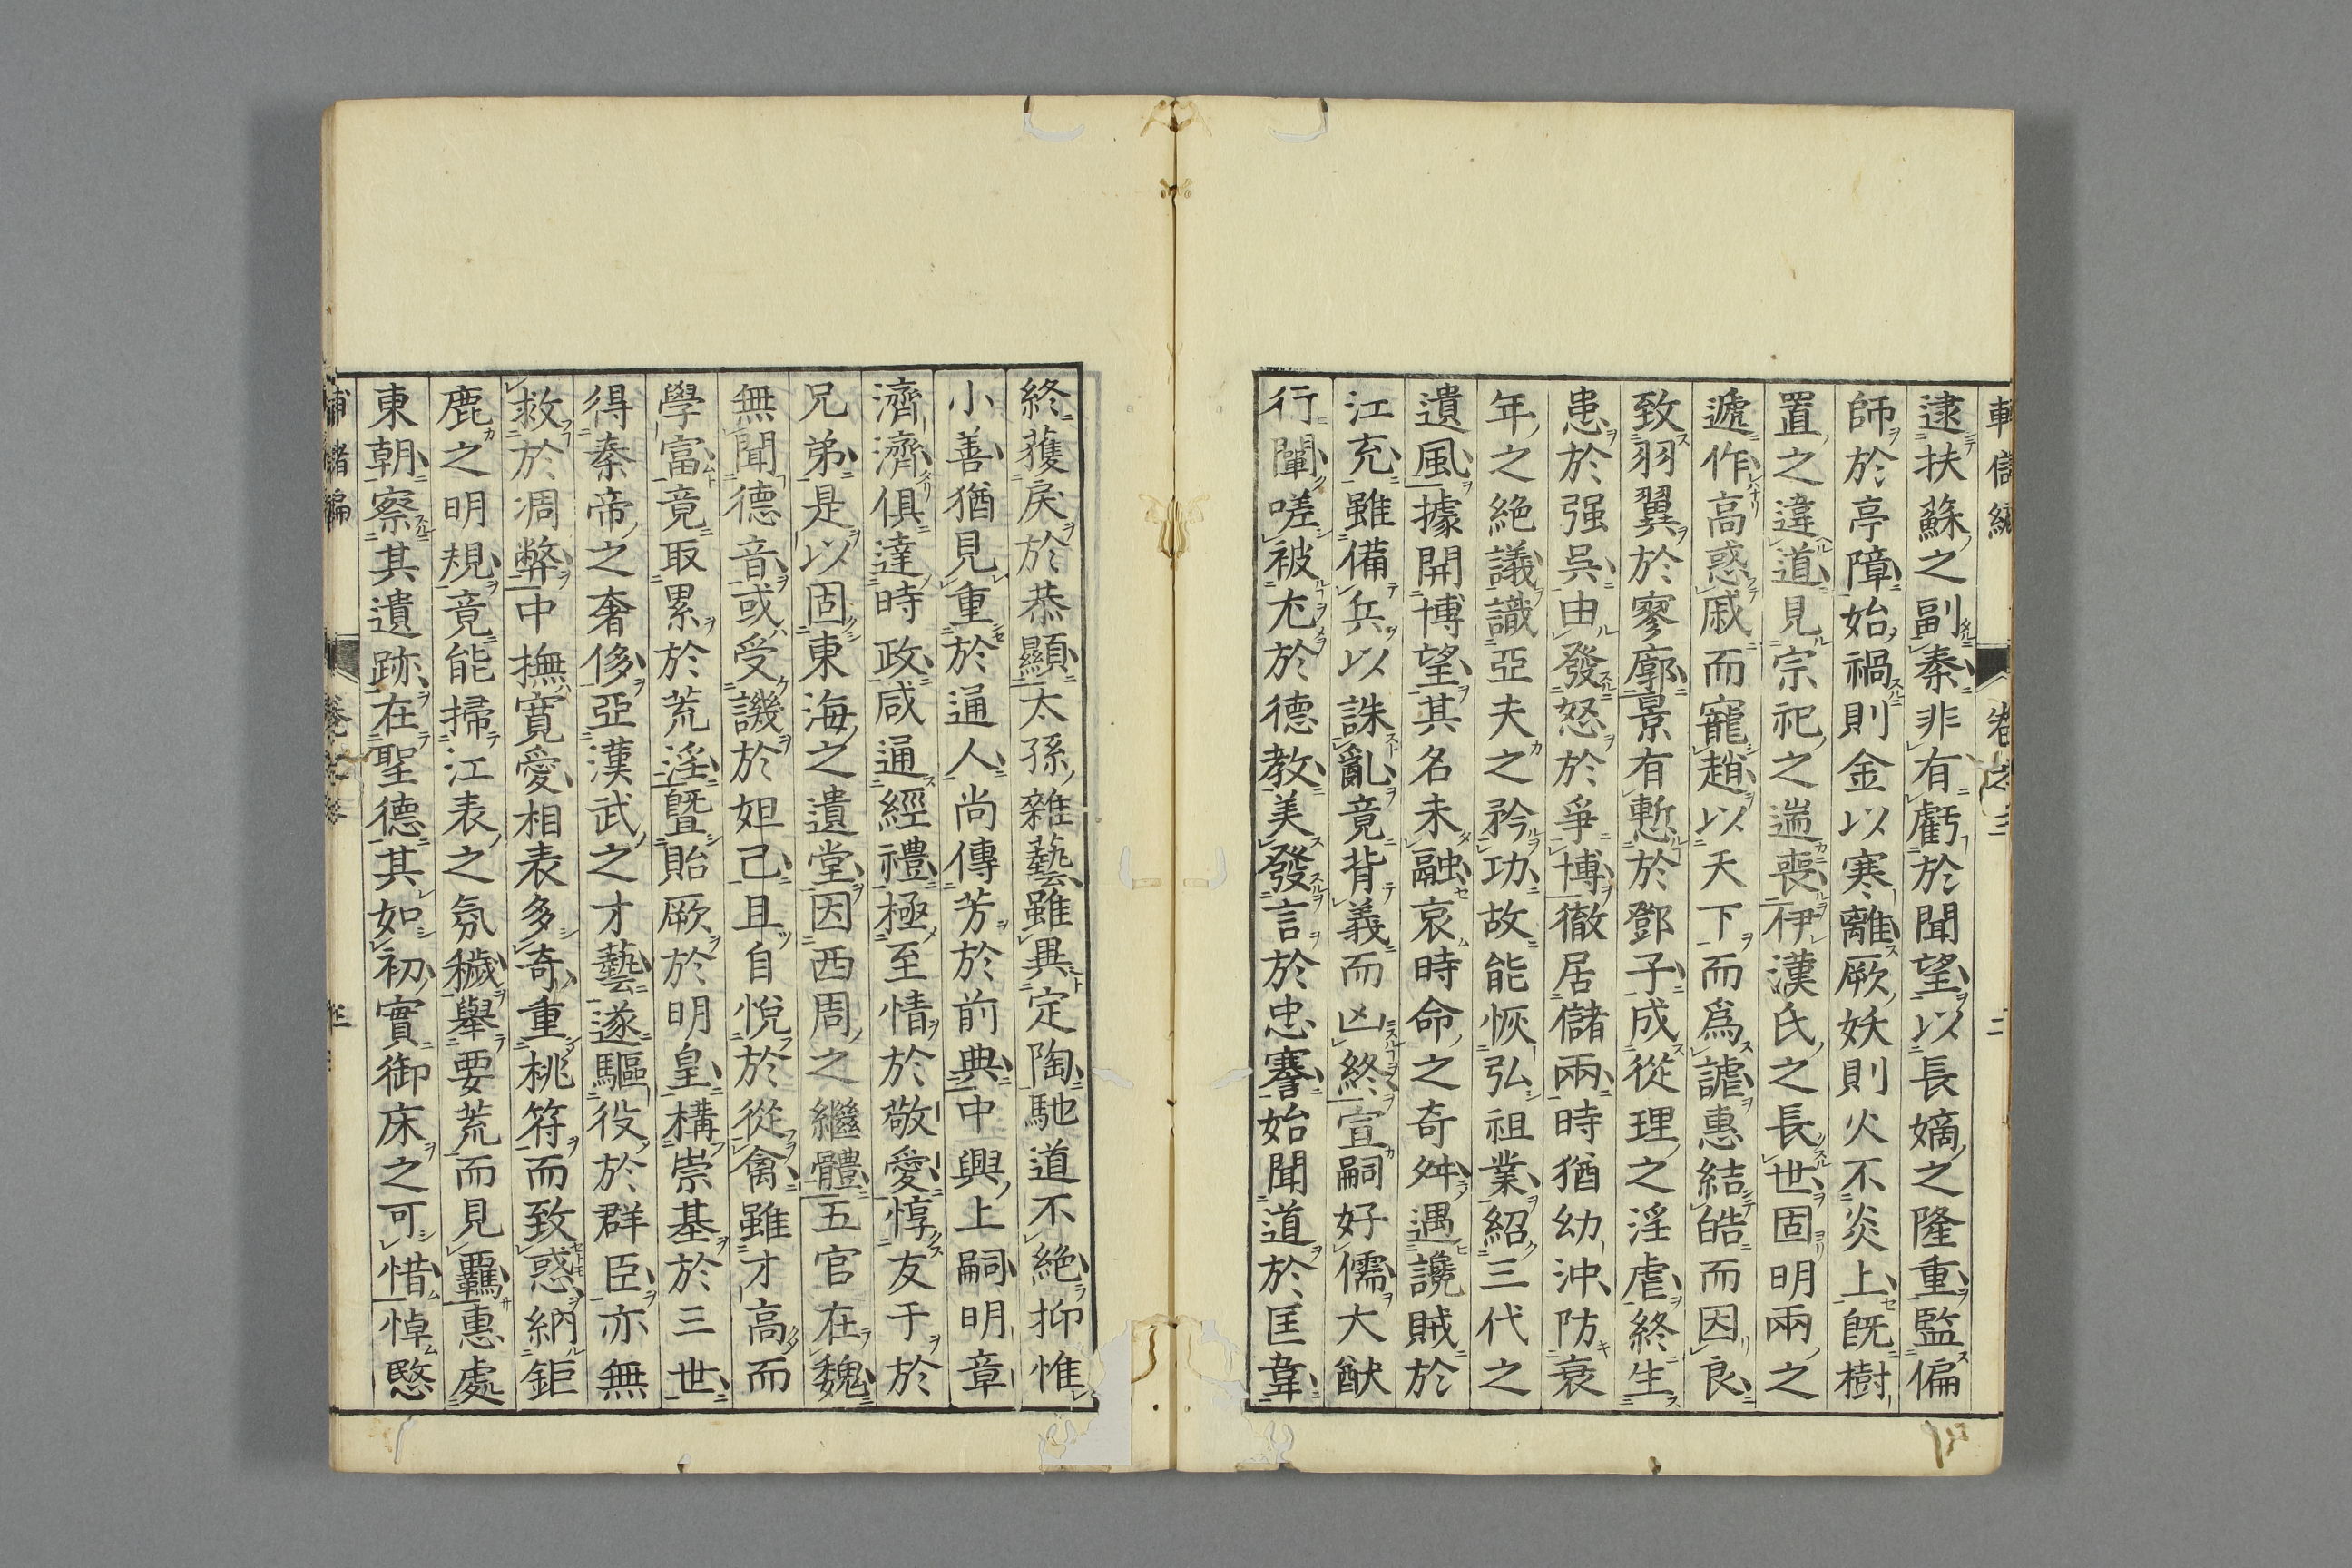 逮扶蘇之副秦非有虧於聞望以長嫡之隆重監偏
師於亭障始禍則金以寒離厥妖則火不炎上既樹
置之違道見宗祀之遄喪伊漢氏之長世固明兩之
遞作高惑戚而寵趙以天下而爲謔惠結皓而因良
致羽翼於寥廓景有慙於鄧子成從理之淫虐終生
患於强吳由發怒於爭博徹居儲兩時猶幼沖防衰
年之絶議識亞夫之矜功故能恢弘祖業紹三代之
遺風據開博望其名未融哀時命之奇舛遇讒賊於
江充雖備兵以誅亂竟背義而凶終宣嗣好儒大猷
行闡嗟被尤於德教美發言於忠謇始聞道於匡韋
終獲戾於恭顯太孫雜藝雖異定陶馳道不絶抑惟
小善猶見重於通人尚傳芳於前典中興上嗣明章
濟濟俱達時政咸通經禮極至情於敬愛惇友于於
兄弟是以固東海之遺堂因西周之繼體五官在魏
無聞德音或受譏於妲己且自悅於從禽雖才高而
學富竟取累於荒淫曁貽厥於明皇構崇基於三世
得秦帝之奢侈亞漢武之才藝遂驅役於群臣亦無
救於凋弊中撫寛愛相表多奇重桃符而致惑納鉅
鹿之明規竟能掃江表之氛穢舉要荒而見羈惠處
東朝察其遺跡在聖德其如初實御床之可惜悼愍